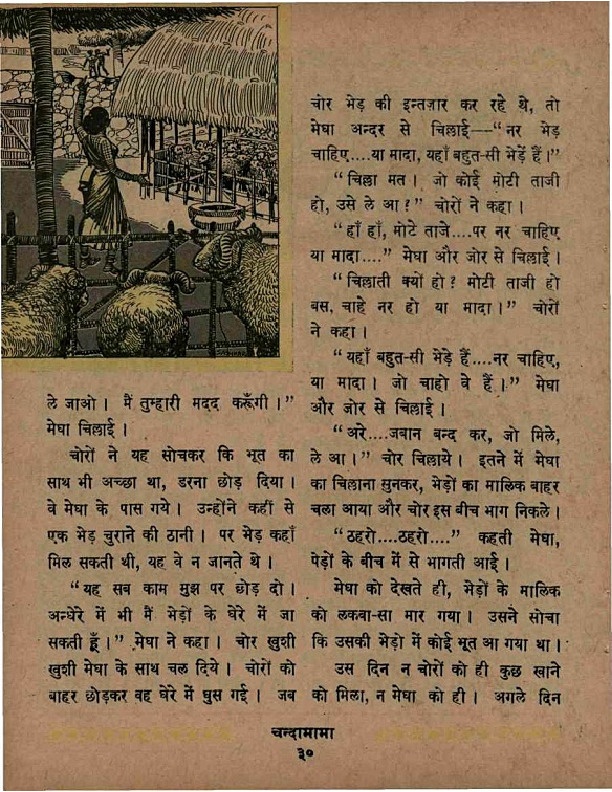 ले जाओ। मैं तुम्हारी मदद करूँगी।"
मेघा चिल्लाई।
चोरों ने यह सोचकर कि भूत का
साथ भी अच्छा था, डरना छोड़ दिया।
वे मेघा के पास गये। उन्होंने कहीं से
एक भेड़ चुराने की ठानी। पर भेड़ कहाँ
मिल सकती थी, यह वे न जानते थे।
"यह सब काम मुझ पर छोड़ दो।
अन्धेरे में भी मैं भेड़ों के घेरे में जा
सकती हूँ।" मेघा ने कहा। चोर खुशी
खुशी मेघा के साथ चल दिये। चोरों को
बाहर छोड़कर वह घेरे में घुस गई। जब
चोर भेड़ की इन्तज़ार कर रहे थे, तो
मेघा अन्दर से चिल्लाई—"नर भेड़
चाहिए....या मादा, यहाँ बहुत-सी भेड़ें हैं।"
"चिल्ला मत। जो कोई मोटी ताजी
हो, उसे ले आ!" चोरों ने कहा।
"हाँ हाँ, मोटे ताजे....पर नर चाहिए
या मादा...." मेघा और जोर से चिल्लाई।
"चिल्लाती क्यों हो? मोटी ताजी हो
बस, चाहे नर हो या मादा।" चोरों
ने कहा।
"यहाँ बहुत-सी भेड़े हैं....नर चाहिए,
या मादा। जो चाहो वे हैं।" मेघा
और जोर से चिल्लाई।
"अरे....जबान बन्द कर, जो मिले,
ले आ।" चोर चिल्लाये। इतने में मेघा
का चिल्लाना सुनकर, भेड़ों का मालिक बाहर
चला आया और चोर इस बीच भाग निकले।
"ठहरो....ठहरो...." कहती मेघा,
पेड़ों के बीच में से भागती आई।
मेघा को देखते ही, भेड़ों के मालिक
को लकवा-सा मार गया। उसने सोचा
कि उसकी भेड़ो में कोई भूत आ गया था।
उस दिन न चोरों को ही कुछ खाने
को मिला, न मेघा को ही। अगले दिन
चन्दामामा
३०